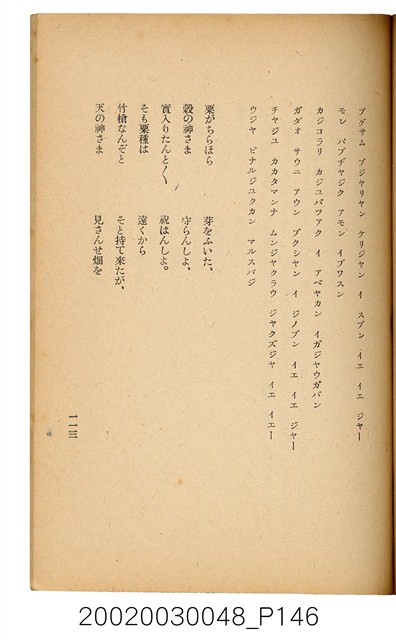 ブグサム ブジヤリヤン ケリジヤン イ スブン イエ イエ ジヤー
モレ パブヂヤジク アモン イブワスン
カジコラリ カジユバツアク イ アベヤカン イガジヤウガバン
ガダオ サウニ アウン ブクシヤン イ ジノブン イエ イエ ジヤー
チヤジユ カカタマンナ ムンジヤクラウ ジヤクズジヤ イエ イエー
ウジヤ ビナルジユクカン マルスバジ
粟がちらほら 芽をふいた、
穀の神さま 守らんしよ、
實入りたんと〱 祝はんしよ。
そも粟種は 遠くから
竹槍なんぞと そと持て來たが、
天の神さま 見さんせ畑を
一一三
20020030048_P146